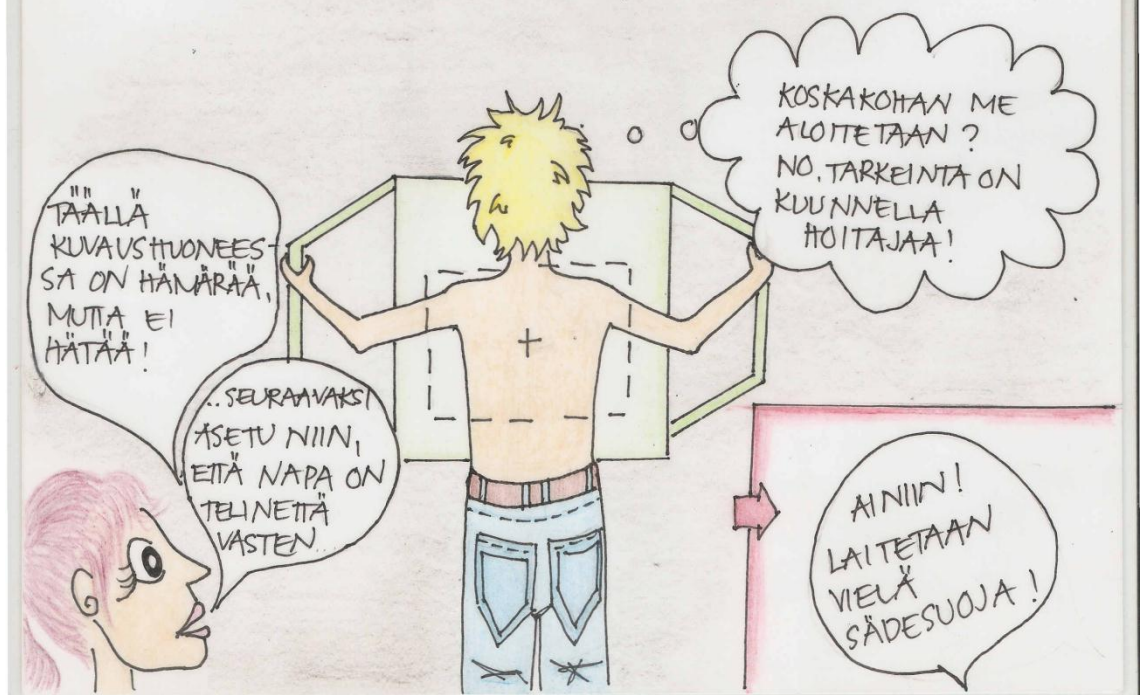 TÄÄLLÄ
KUVAUSHUONEES
SA ON HÄMÄRÄÄ,
MUTTA EI
HÄTÄÄ!
..SEURAAVAKSI
ASETU NIIN,
ETTÄ NAPA ON
TELINETTÄ
VASTEN..
KOSKAKOHAN ME
ALOITETAAN?
NO, TARKEINTA ON
KUUNNELLA
HOITAJAA!
AI NIIN!
LAITETAAN
VIELÄ
SÄDESUOJA!